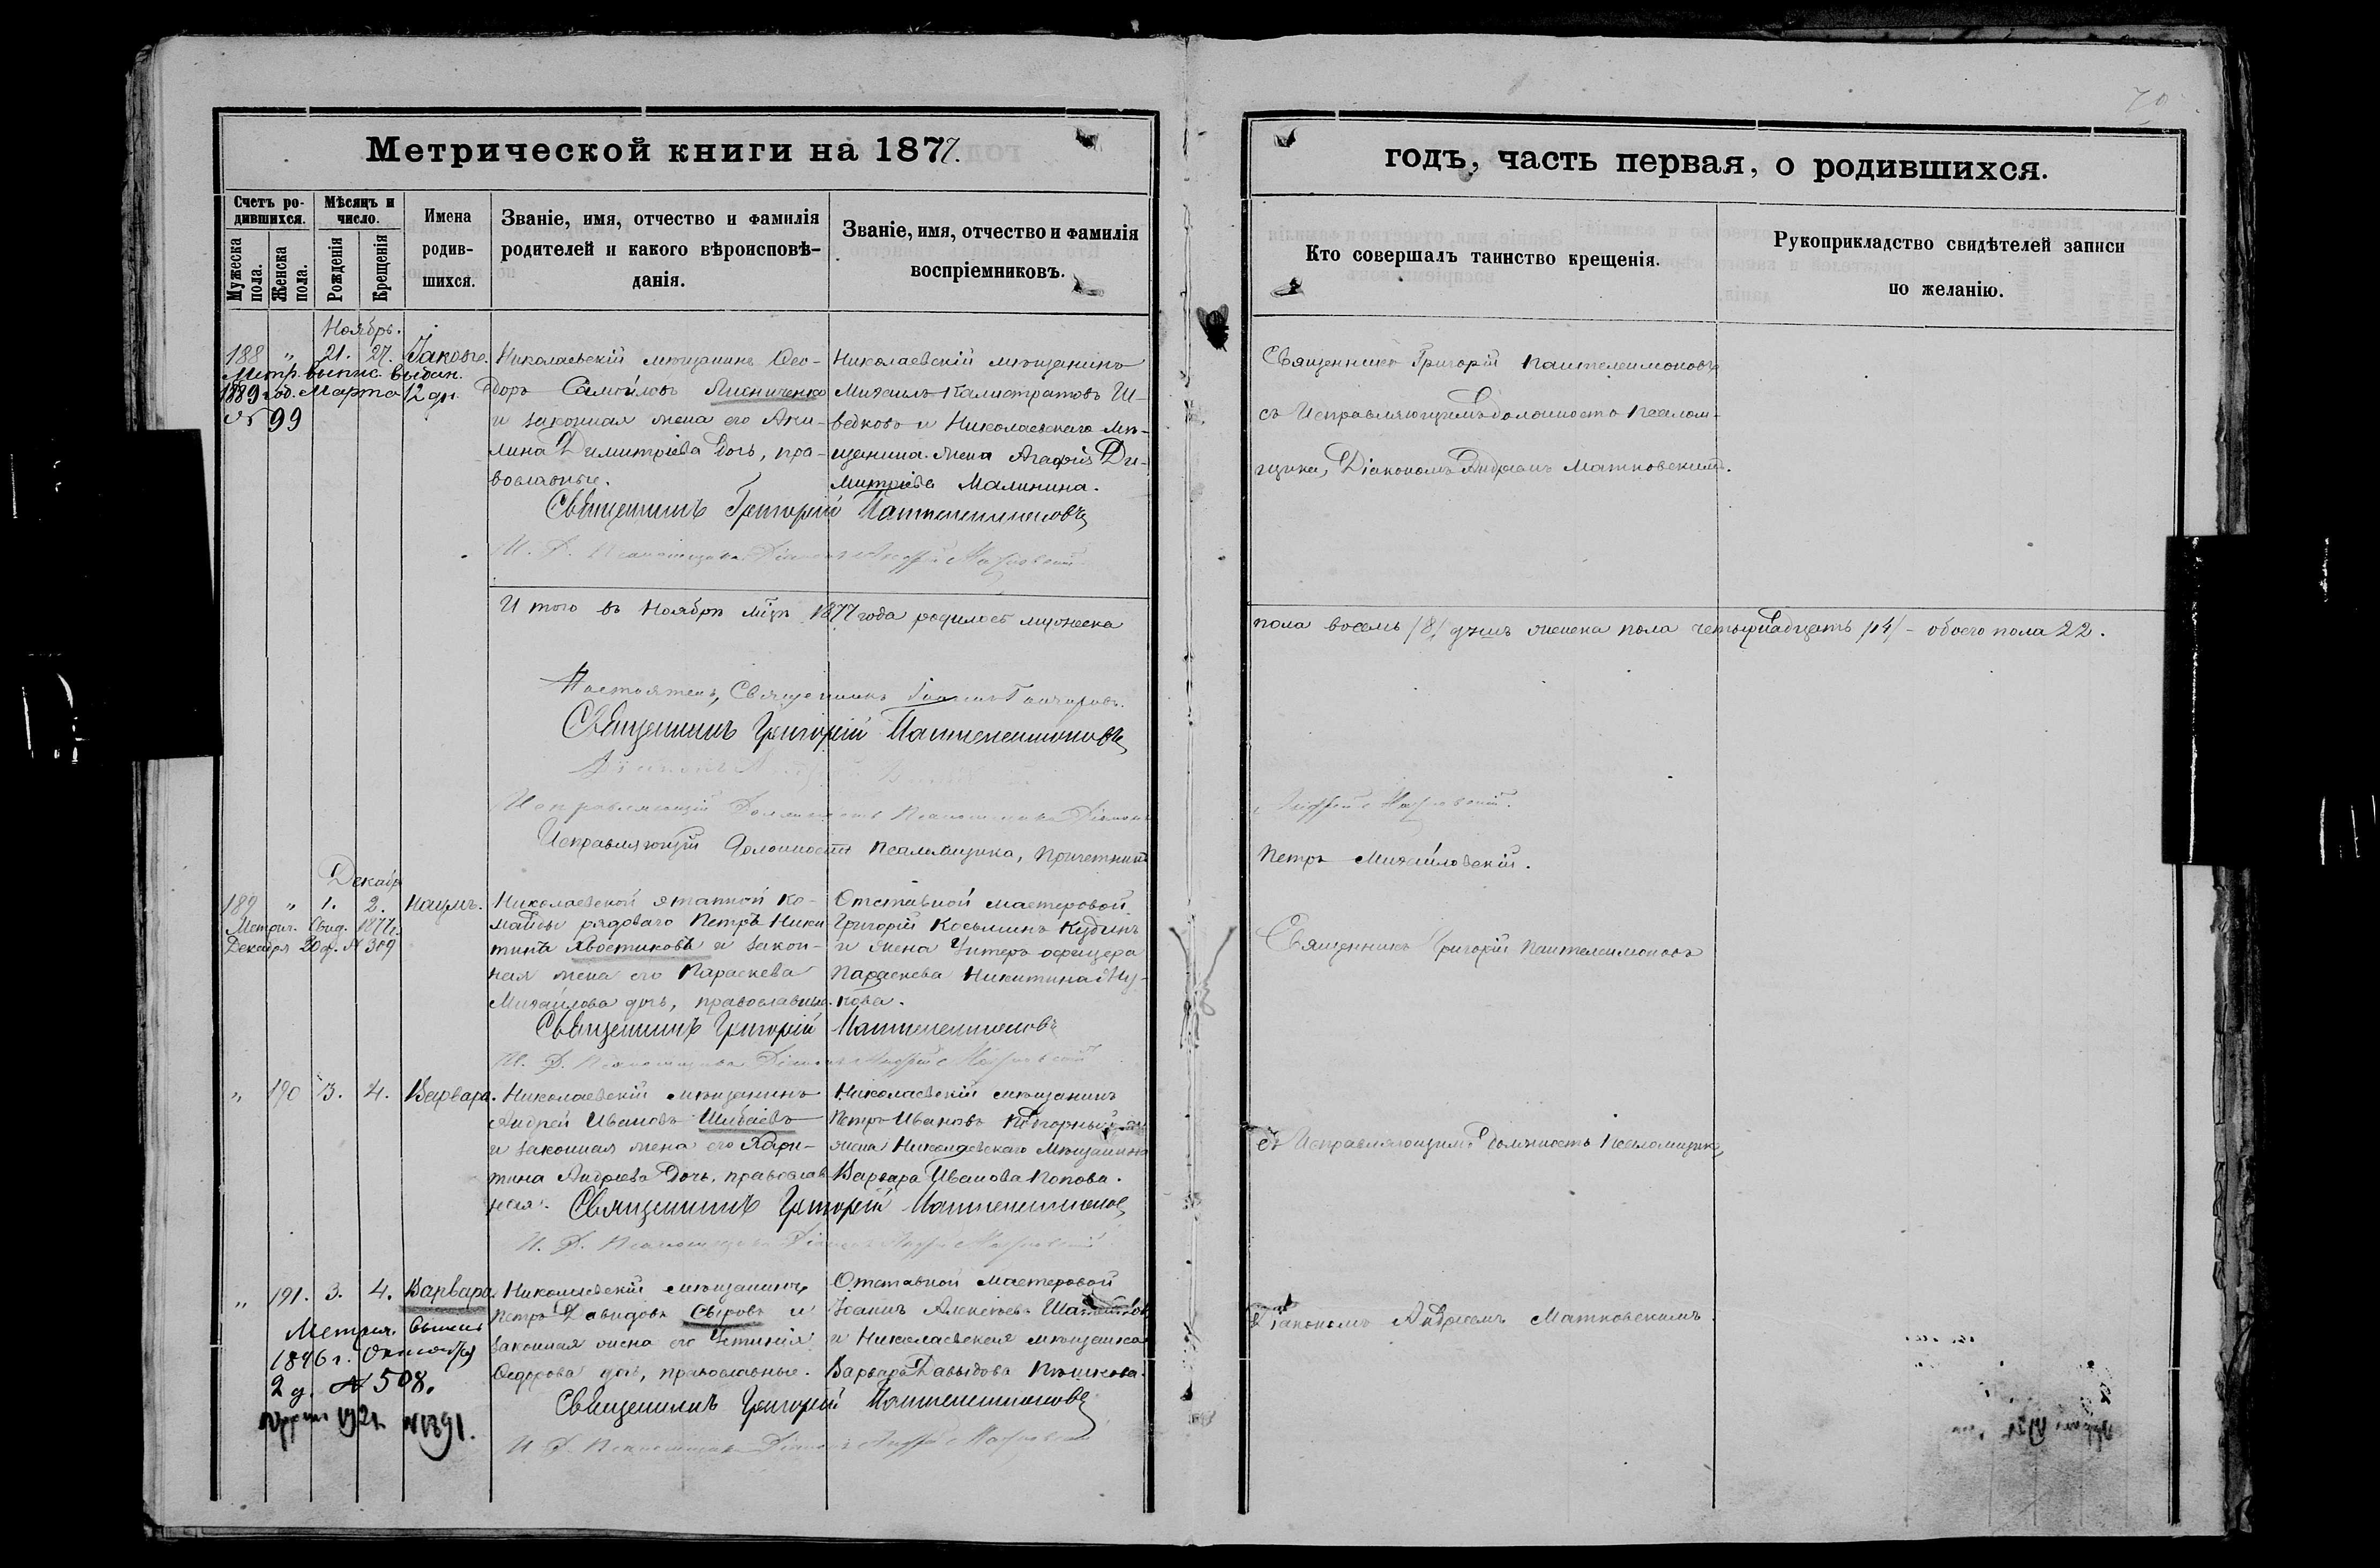 70
Метрической книги на 1877.
годъ, часть первая, о родившихся.
Счетъ ро-
дившихся.
Мужеска
пола.
Женска
пола.
Мѣсяцъ и
число.
Рожденія
Крещенія
Имена
родив-
шихся.
Званіе, имя, отчество и фамилія
родителей и какого вѣроисповѣ-
данія.
Званіе, имя, отчество и фамилія
воспріемниковъ.
Кто совершалъ таинство крещенія.
Рукоприкладство свидѣтелей записи
по желанію.
Ноябрь.
188 „ 21. 27. Іаковъ.
Метр. выпис. выдан.
1889 год. Марта 12 дн.
№ 99
Николаевскій мѣщанинъ Ѳео-
доръ Самойловъ
и законная жена его Аки-
лина Димитріева дочь, пра-
вославные.
Николаевскій мѣщанинъ
Михаилъ Калистратовъ Ш-
ведковъ и Николаевскаго мѣ-
щанина жена Агафія Ди-
митріева Малинина.
Священникъ Григорій Пантелеимоновъ
И. Д. Псаломщика Діаконъ Андрей Матковскій
Священникъ Григорій Пантелеимоновъ
съ Исправляющимъ должность псалом-
щика, Діакономъ Андреемъ Матковскимъ.
Итого въ Ноябрѣ мцѣ 1877 года родилось мужеска
пола восемь /8/ душъ женска пола четырнадцать /14/ - обоего пола 22.
Настоятель, Священникъ
Священникъ Григорій Пантелеимоновъ
Исправляющій Должность Псаломщика Діаконъ
Андрей Матковскій.
Исправляющій должность псаломщика, причетникъ
Петръ Михайловскій.
Декабрь
189 „ 1. 2. Наумъ.
Метрич. Свид. 1877 г.
Декабря 20 д. № 309
Николаевской штатной ко-
манды рядоваго Петръ Ники
тинъ Хвостиковъ и закон-
ная жена его Параскева
Михайлова дочь, православные.
Отставной мастеровой
Григорій Косьминъ Кудинъ
и жена Унтеръ офицера
Параскева Никитина
Священникъ Григорій Пантелеимоновъ
И. Д. Псаломщика Діаконъ Андрей Матковскій
Священникъ Григорій Пантелеимоновъ
„ 190 3. 4. Варвара.
Николаевскій мѣщанинъ
Андрей Ивановъ Шибаевъ
и законная жена его Хари-
тина Андреева дочь, православ
ная.
Николаевскій мѣщанинъ
Петръ Ивановъ и
жена Николаевскаго мѣщанина
Варвара Иванова Попова.
Священникъ Григорій Пантелеимоновъ
И. Д. Псаломщика Діаконъ Андрей Матковскій
съ Исправляющимъ должность Псаломщика,
„ 191. 3. 4. Варвара.
Метрич. выпись
1896 г. Октября
2 д. № 508.
1921 № 1391.
Николаевскій мѣщанинъ
Петръ Давидовъ Сыровъ и
законная жена его Устинія
Ѳедорова дочь, православные.
Отставной мастеровой
Іоаннъ Алексѣевъ
и Николаевская мѣщанка
Варвара Давыдова
Священникъ Григорій Пантелеимоновъ
И. Д. Псаломщика Діаконъ Андрей Матковскій
Діакономъ Андреемъ Матковскимъ.